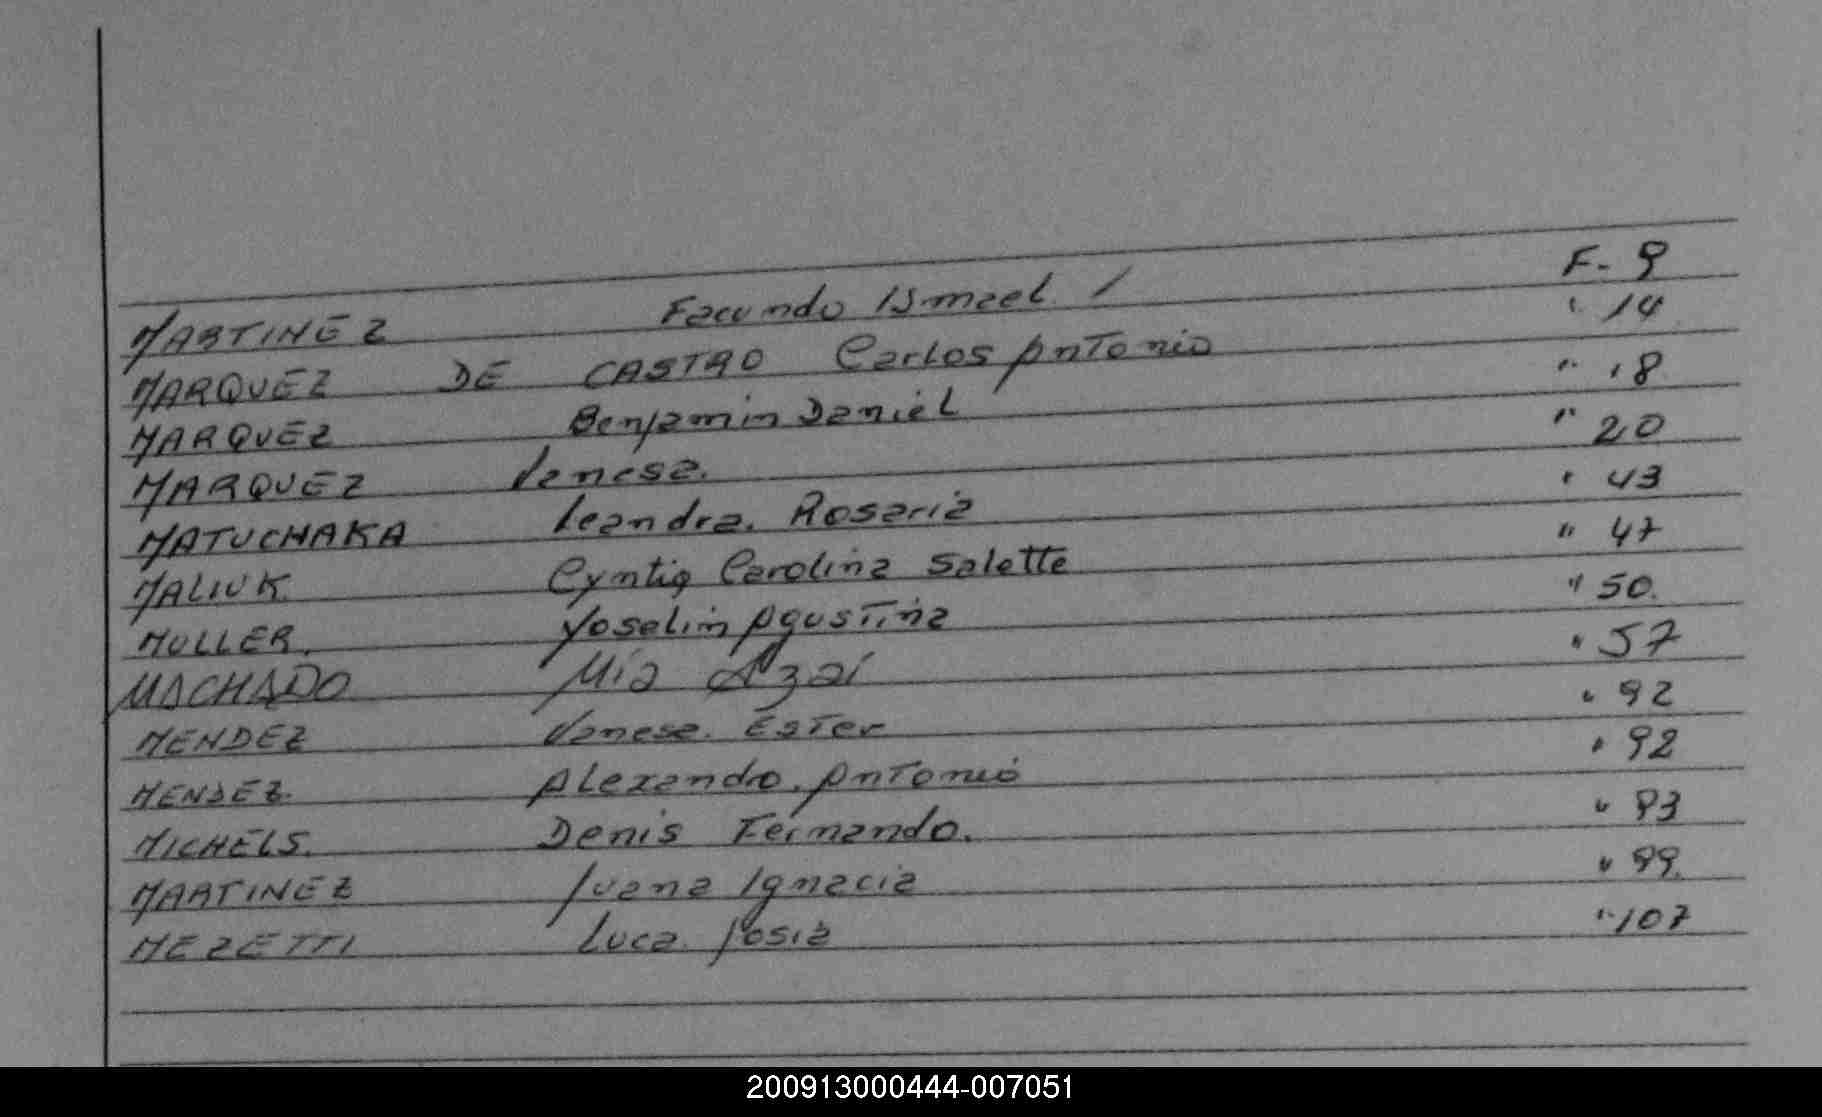 MARTINEZ Facundo Ismael. / F- 9
MARQUEZ DE CASTRO Carlos Antonio " 14
MARQUEZ Benjamin Daniel " 18
MARQUEZ Vanesa. " 20
MATUCHAKA Leandra. Rosaria " 43
MALIUK. Cyntia Carolina Salette " 47
MULLER. Yoselin Agustina " 50.
MACHADO Mia Azai " 57
MENDEZ Vanesa. Ester " 92
MENDEZ. Alexandro. Antonio " 92
MICHELS. Denis Fernando. " 93
MARTINEZ Juana Ignacia " 99.
MEZETTI Luca Josia " 107
200913000444-007051